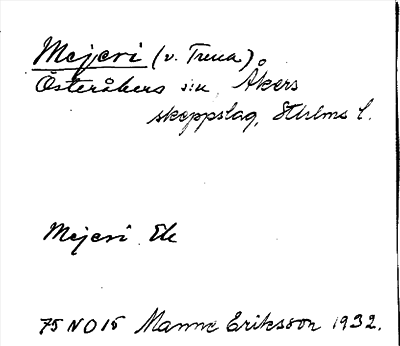 Mejeri (v. Truca)
Österåkers s:n, Åkers
skeppslag, Sthlms l.
Mejeri Ek
75 NO 15 Manne Eriksson 1932.